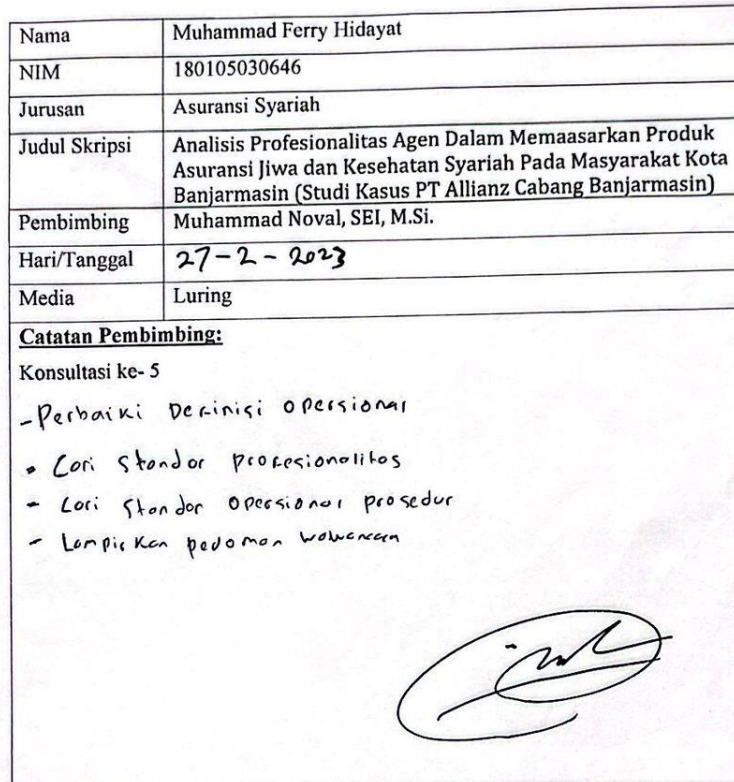 Nama Muhammad Ferry Hidayat
NIM 180105030646
Jurusan Asuransi Syariah
Judul Skripsi Analisis Profesionalitas Agen Dalam Memaasarkan Produk
Asuransi Jiwa dan Kesehatan Syariah Pada Masyarakat Kota
Banjarmasin (Studi Kasus PT Allianz Cabang Banjarmasin)
Pembimbing Muhammad Noval, SEI, M.Si.
Hari/Tanggal 27-2-2023
Media Luring
Catatan Pembimbing:
Konsultasi ke- 5
- Perbaiki Definisi opersional
- Cari Standar profesionalitas
- Cari Standar opersional prosedur
- Lampirkan pedoman wawancara